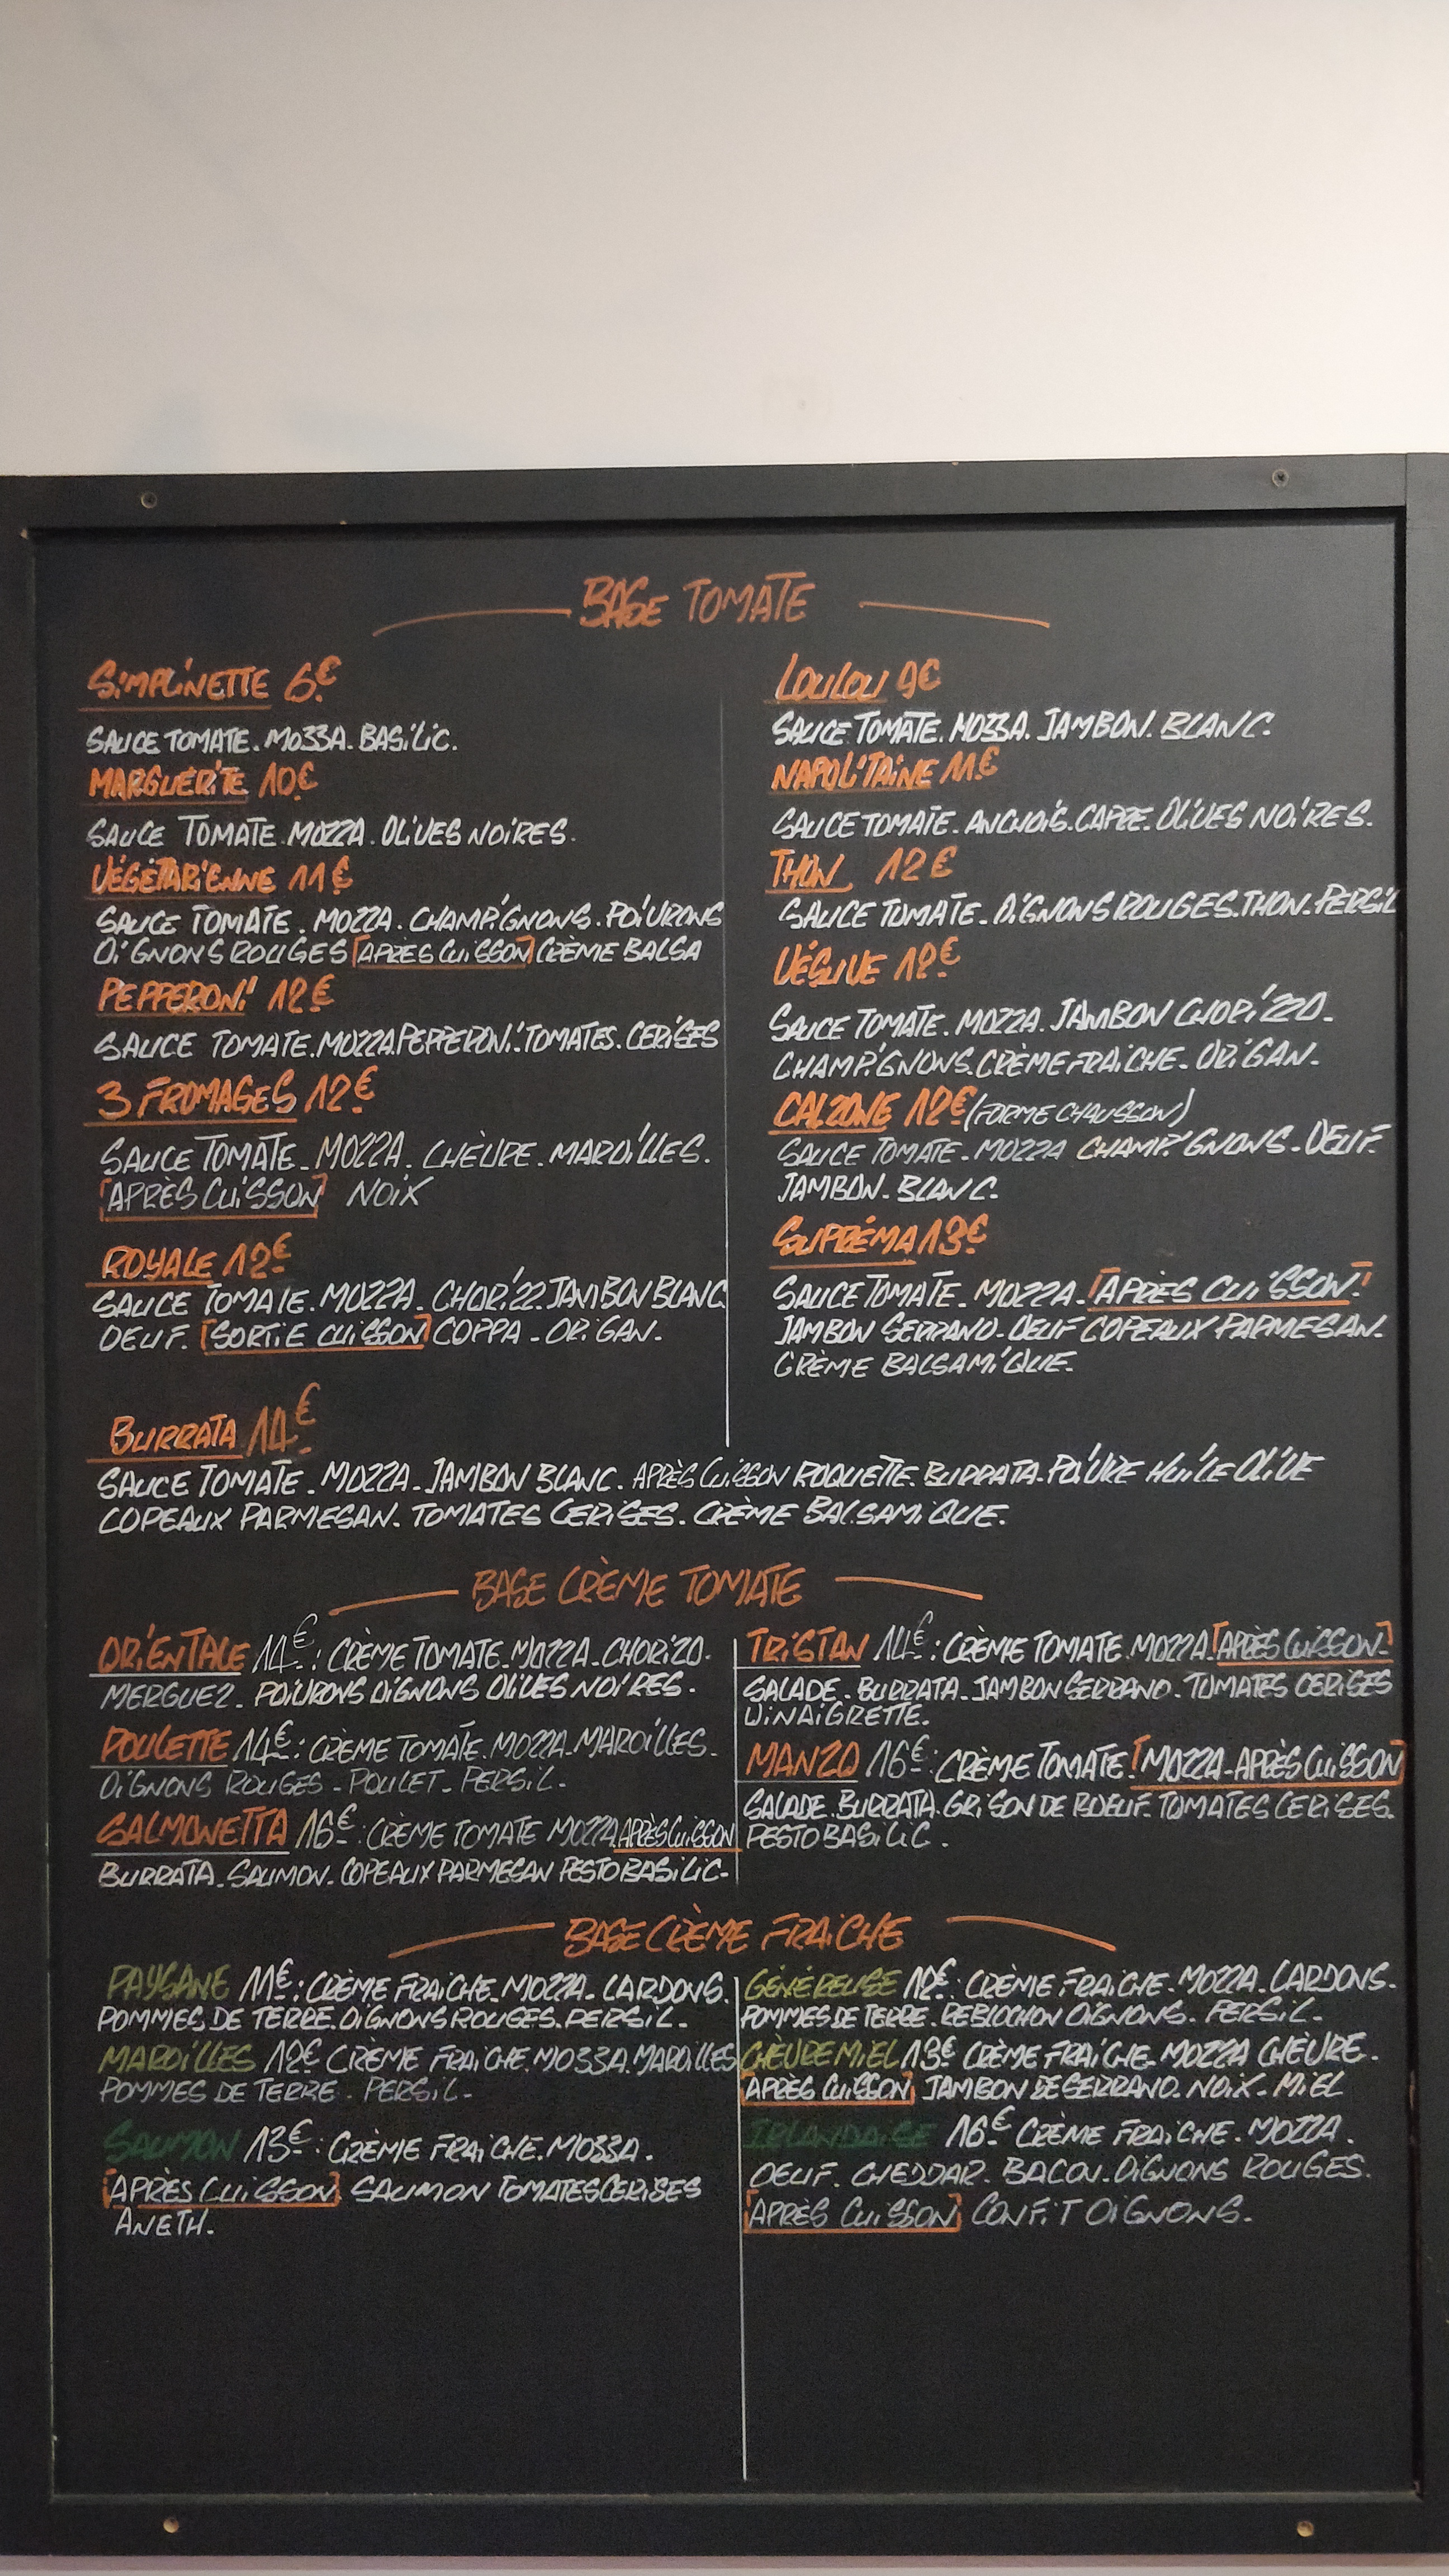 BASE TOMATE
SIMPLINETTE 6€
SAUCE TOMATE. MOZZA. BASILIC.
MARGUERITE 10€
SAUCE TOMATE. MOZZA. OLIVES NOIRES.
VÉGÉTARIENNE 11€
SAUCE TOMATE. MOZZA. CHAMPIGNONS. POIVRONS
OIGNONS ROUGES [APRÈS CUISSON] CRÈME BALSA
PEPPERONI 12€
SAUCE TOMATE. MOZZA. PEPPERONI. TOMATES. CERISES
3 FROMAGES 12€
SAUCE TOMATE. MOZZA. CHÈVRE. MAROILLES.
[APRÈS CUISSON] NOIX
ROYALE 12€
SAUCE TOMATE. MOZZA. CHORIZZ. JAMBON BLANC
OEUF. [SORTIE CUISSON] COPPA. ORIGAN.
LOULOU 9€
SAUCE TOMATE. MOZZA. JAMBON. BLANC.
NAPOLITAINE 11€
SAUCE TOMATE. ANCHOIS. CAPRE. OLIVES NOIRES.
THON 12€
SAUCE TOMATE. OIGNONS ROUGES. THON. PERSIL
VÉSUVE 12€
SAUCE TOMATE. MOZZA. JAMBON CHORIZZO.
CHAMPIGNONS. CRÈME FRAICHE. ORIGAN.
CALZONE 12€ (FORME CHAUSSON)
SAUCE TOMATE. MOZZA CHAMPIGNONS. OEUF.
JAMBON. BLANC.
SUPRÉMA 13€
SAUCE TOMATE. MOZZA. [APRÈS CUISSON]
JAMBON SERRANO. OEUF COPEAUX PARMESAN.
CRÈME BALSAMIQUE.
BURRATA 14€
SAUCE TOMATE. MOZZA. JAMBON BLANC. APRÈS CUISSON ROQUETTE. BURRATA. POIVRE HUILE OLIVE
COPEAUX PARMESAN. TOMATES CERISES. CRÈME BALSAMIQUE.
BASE CRÈME TOMATE
ORIENTALE 14€: CRÈME TOMATE. MOZZA. CHORIZO.
MERGUEZ. POIVRONS OIGNONS OLIVES NOIRES.
POULETTE 14€: CRÈME TOMATE. MOZZA. MAROILLES.
OIGNONS ROUGES. POULET. PERSIL.
SALMONETTA 16€: CRÈME TOMATE MOZZA APRÈS CUISSON
BURRATA. SAUMON. COPEAUX PARMESAN PESTO BASILIC.
TRISTAN 14€: CRÈME TOMATE. MOZZA. [APRÈS CUISSON.]
SALADE. BURRATA. JAMBON SERRANO. TOMATES CERISES
VINAIGRETTE.
MANZO 16€: CRÈME TOMATE. [MOZZA. APRÈS CUISSON]
SALADE. BURRATA. GRISON DE BOEUF. TOMATES CERISES.
PESTO BASILIC.
BASE CRÈME FRAICHE
PAYSANE 11€: CRÈME FRAICHE. MOZZA. LARDONS.
POMMES DE TERRE. OIGNONS ROUGES. PERSIL.
MAROILLES 12€ CRÈME FRAICHE. MOZZA. MAROILLES
POMMES DE TERRE. PERSIL.
SAUMON 13€: CRÈME FRAICHE. MOZZA.
[APRÈS CUISSON] SAUMON TOMATES CERISES
ANETH.
GÉNÉREUSE 12€: CRÈME FRAICHE. MOZZA. LARDONS.
POMMES DE TERRE. REBLOCHON OIGNONS. PERSIL.
CHÈVRE MIEL 13€ CRÈME FRAICHE. MOZZA CHÈVRE.
[APRÈS CUISSON] JAMBON DE SERRANO. NOIX. MIEL
IRLANDAISE 16€ CRÈME FRAICHE. MOZZA.
OEUF. CHEDDAR. BACON. OIGNONS ROUGES.
[APRÈS CUISSON] CONFIT OIGNONS.